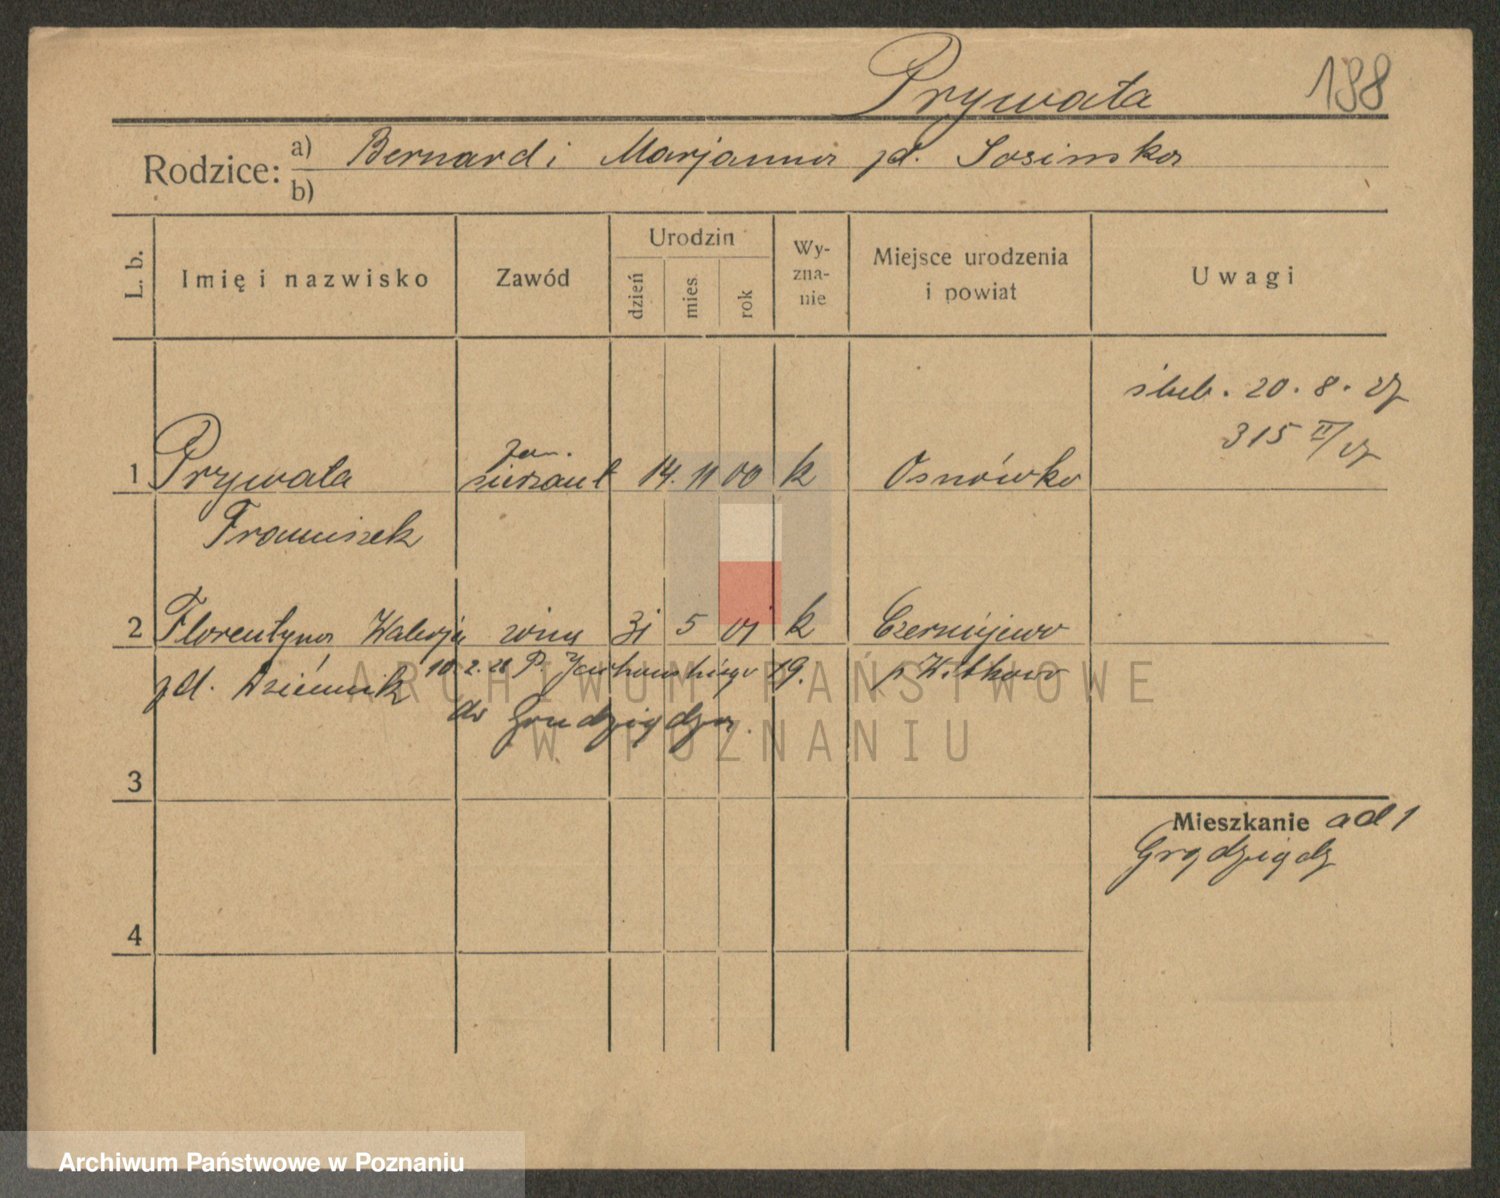 Prywata 198
Rodzice: a) Bernard i Marjanna zd. Sosinska
b)
L. b. Imię i nazwisko Zawód Urodzin dzień mies. rok Wyznanie Miejsce urodzenia i powiat Uwagi
ślub. 20. 8. 27
315 II/27
1 Prywata sierżant 14. 11 00 k Osnówko
Franciszek
2 Florentyna Walerja żona 31 5 01 k Czerniejewo
zd. Dziennik 10. 2. 28 P. 19. p Witkowo
do Grudziądza.
ARCHIWUM PAŃSTWOWE
W POZNANIU
3
Mieszkanie ad 1
Grądziądz
4
Archiwum Państwowe w Poznaniu